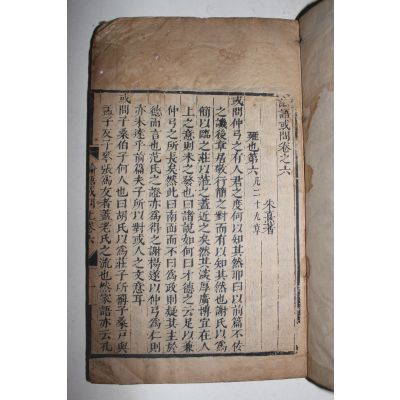 論語或問卷之六
朱熹著
雍也第六 凡二十九章
或問仲弓之有人君之度何以知其然耶曰以前篇不佞
之譏後章居敬行簡之對而知其然也謝氏以爲
簡以臨之莊以涖之蓋近之矣然其深厚廣博宜在人
上之意則未之發也曰諸說如何曰才德之云足以兼
仲弓之所長矣然此曰南面而不曰爲政則疑其主於
德而言也范氏之證亦爲得之謝楊遂以仲弓爲仁則
亦未達乎前篇夫子所以對或人之文意耳
或問子桑伯子何人也曰胡氏以爲莊子所稱子桑戶與
孟子反子琴張爲友者蓋老氏之流也然家語亦云孔
論語或問 卷六